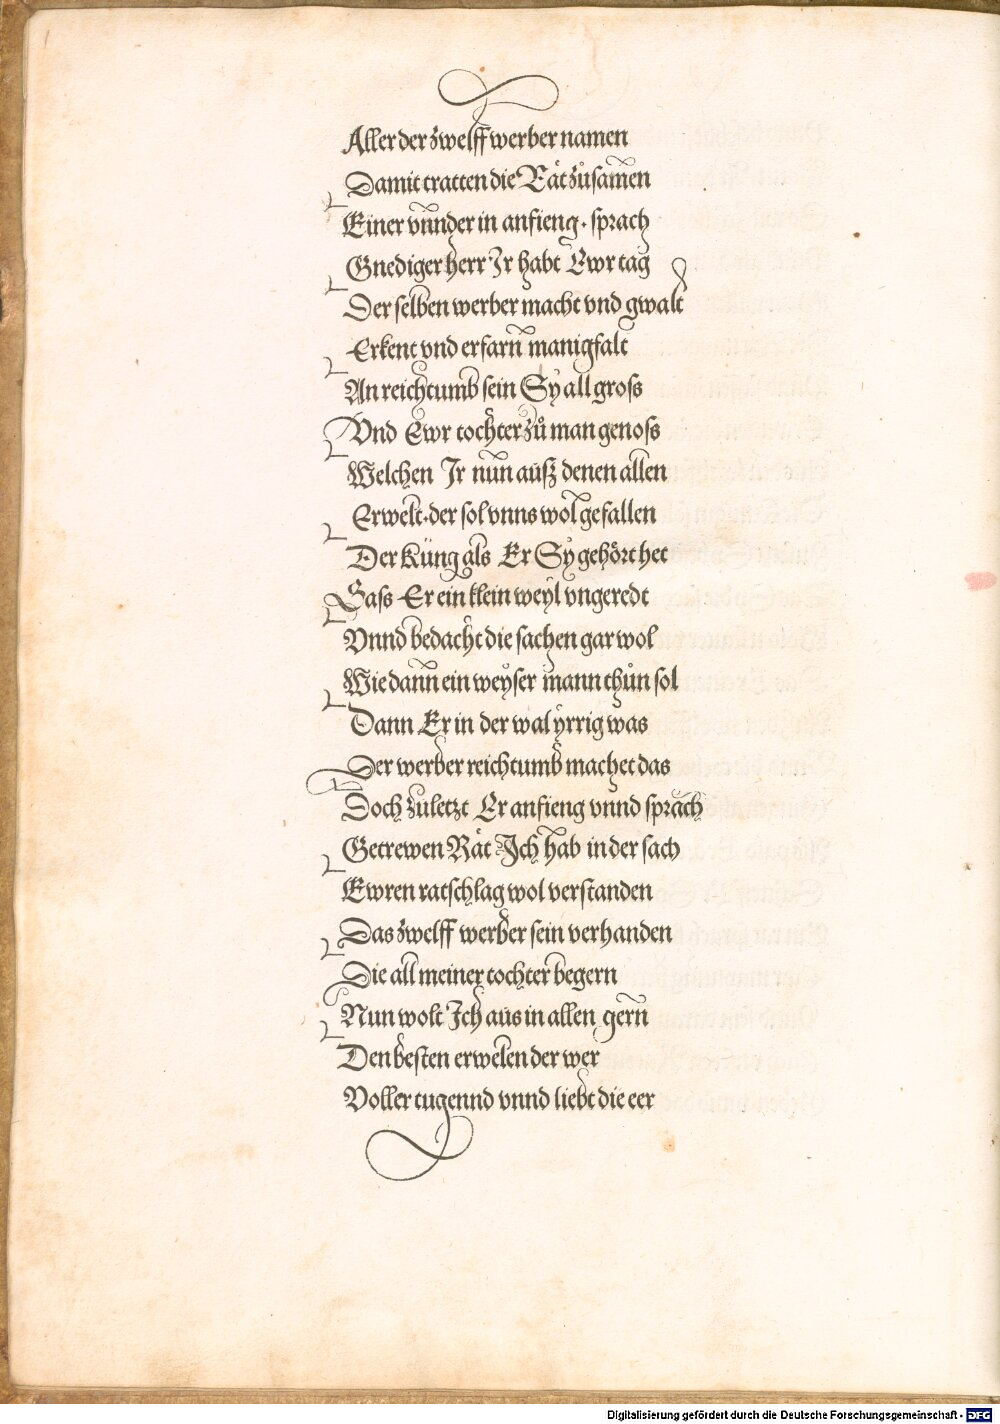 Aller der zwelff werber namen
Damit tratten die Rät zůsamen
Einer vnnder in anfieng. sprach
Gnediger herr Ir habt Ewr tag
Der selben werber macht vnd gwalt
Erkent vnd erfarn manigfalt
An reichtumb sein Sy all gross
Vnd Ewr tochter zů man genoss
Welchen Ir nun auß denen allen
Erwelt. der sol vnns wol gefallen
Der Küng als Er Sy gehört het
Sass Er ein klein weyl vngeredt
Vnnd bedacht die sachen gar wol
Wie dann ein weyser mann thůn sol
Dann Er in der wal yrrig was
Der werber reichtumb machet das
Doch zuletzt Er anfieng vnnd sprach
Getrewen Rät Ich hab in der sach
Ewren ratschlag wol verstanden
Das zwelff werber sein verhanden
Die all meiner tochter begern
Nun wolt Ich aus in allen gern
Den besten erwelen der wer
Voller tugennd vnnd liebt die eer
Digitalisierung gefördert durch die Deutsche Forschungsgemeinschaft - DFG